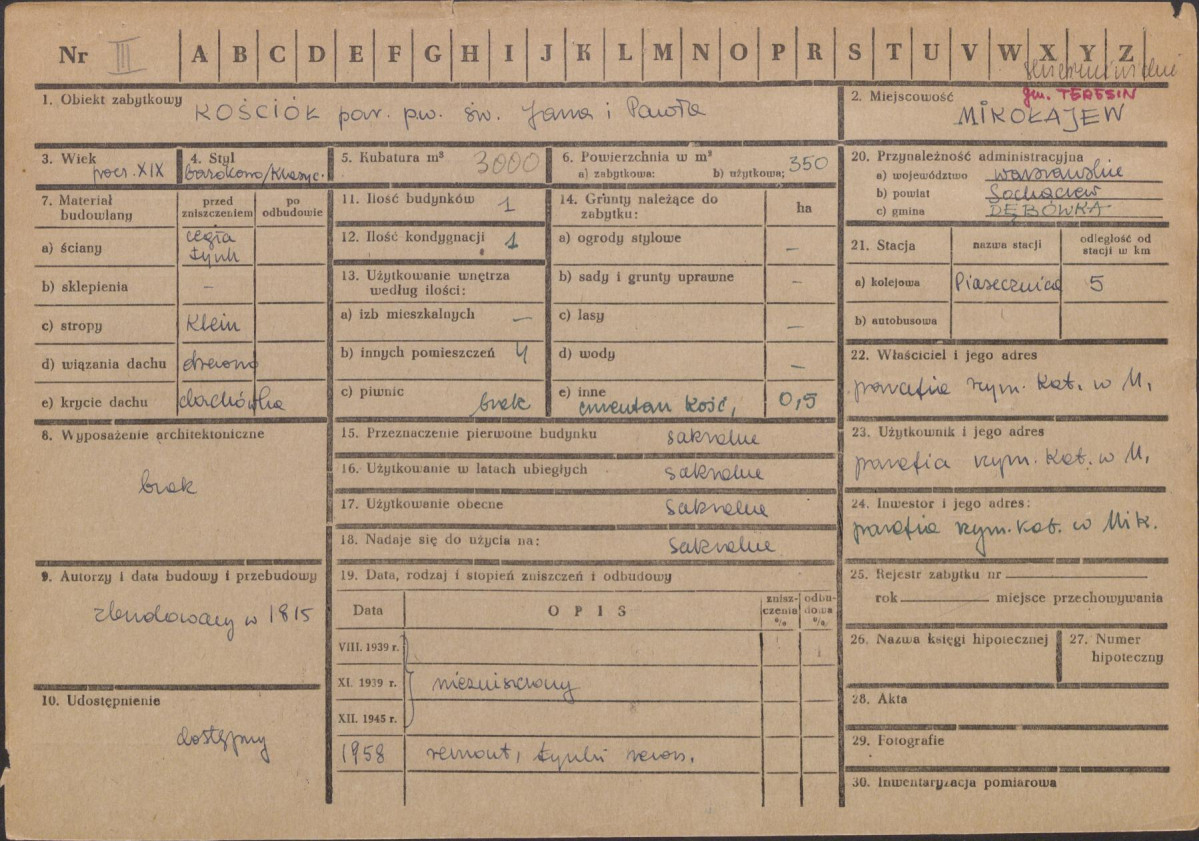 Nr III A B C D E F G H I J K L M N O P R S T U V W X Y Z
1. Obiekt zabytkowy KOŚCIÓŁ par. p.w. św. Jana i Pawła
2. Miejscowość gm. TERESIN
MIKOŁAJEW
3. Wiek
pocz. XIX
4. Styl
barokowo/klasyc.
5. Kubatura m³ 3000
6. Powierzchnia w m²
a) zabytkowa: b) użytkowa; 350
7. Materiał budowlany
przed zniszczeniem
po odbudowie
a) ściany cegła
tynk
b) sklepienia –
c) stropy Klein
d) wiązania dachu drewno
e) krycie dachu dachówka
8. Wyposażenie architektoniczne
brak
9. Autorzy i data budowy i przebudowy
zbudowany w 1815
10. Udostępnienie
dostępny
11. Ilość budynków 1
12. Ilość kondygnacji 1
13. Użytkowanie wnętrza
według ilości:
a) izb mieszkalnych –
b) innych pomieszczeń 4
c) piwnic brak
14. Grunty należące do
zabytku: ha
a) ogrody stylowe –
b) sady i grunty uprawne –
c) lasy –
d) wody –
e) inne
cmentarz kość, 0,5
15. Przeznaczenie pierwotne budynku sakralne
16. Użytkowanie w latach ubiegłych sakralne
17. Użytkowanie obecne sakralne
18. Nadaje się do użycia na: sakralne
19. Data, rodzaj i stopień zniszczeń i odbudowy
Data OPIS zniszczenia % odbudowa %
VIII. 1939 r.
XI. 1939 r. niezniszczony
XII. 1945 r.
1958 remont, tynki zewn.
20. Przynależność administracyjna
a) województwo warszawskie
b) powiat Sochaczew
c) gmina DĘBÓWKA
21. Stacja nazwa stacji odległość od
stacji w km
a) kolejowa Piasecznica 5
b) autobusowa
22. Właściciel i jego adres
parafia rzym. kat. w M.
23. Użytkownik i jego adres
parafia rzym. kat. w M.
24. Inwestor i jego adres:
parafia rzym. kat. w Mik.
25. Rejestr zabytku nr
rok miejsce przechowywania
26. Nazwa księgi hipotecznej
27. Numer
hipoteczny
28. Akta
29. Fotografie
30. Inwentaryzacja pomiarowa